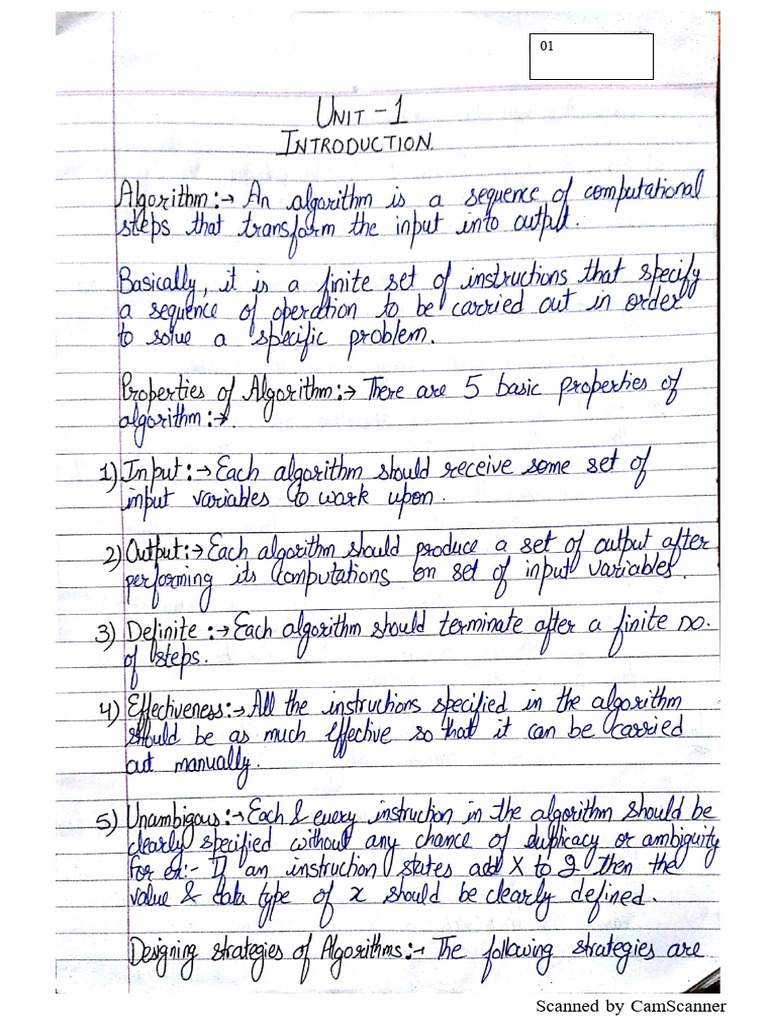 01
UNIT - 1
INTRODUCTION.
Algorithm:→ An algorithm is a sequence of computational
steps that transform the input into output.
Basically, it is a finite set of instructions that specify
a sequence of operation to be carried out in order
to solve a specific problem.
Properties of Algorithm:→ There are 5 basic properties of
algorithm:→.
1) Input:→ Each algorithm should receive some set of
input variables to work upon.
2) Output:→ Each algorithm should produce a set of output after
performing its computations on set of input variables.
3) Definite:→ Each algorithm should terminate after a finite no.
of steps.
4) Effectiveness:→ All the instructions specified in the algorithm
should be as much effective so that it can be carried
out manually.
5) Unambigous:→ Each & every instruction in the algorithm should be
clearly specified without any chance of duplicacy or ambiguity
for ex:- If an instruction states add X to 2 then the
value & data type of x should be clearly defined.
Designing strategies of Algorithms:→ The following strategies are
Scanned by CamScanner